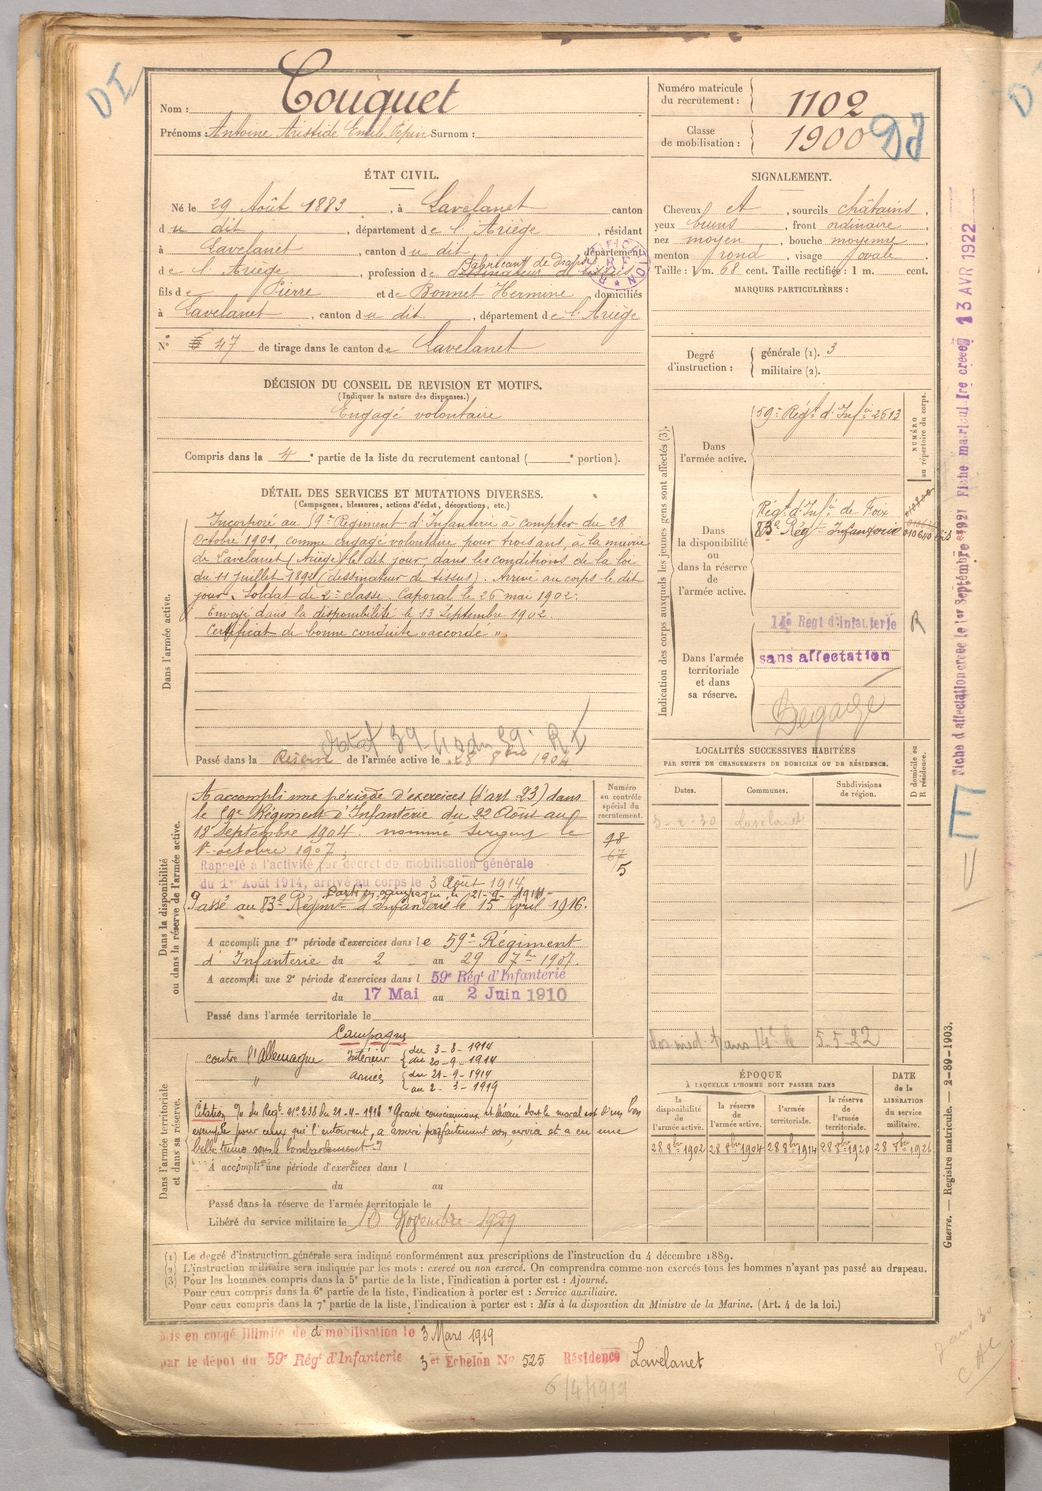 Nom : Couquet
Prénoms : Antoine Aristide Emile Pépin Surnom :
Numéro matricule du recrutement : 1102
Classe de mobilisation : 1900
ÉTAT CIVIL.
Né le 29 Août 1883, à Lavelanet canton
du dit, département de l'Ariège, résidant
à Lavelanet, canton du dit, département
Fabricant de draps
de l'Ariège, profession de dessinateur de tissus
fils de Pierre et de Bonnet Hermine, domiciliés
à Lavelanet, canton du dit, département de l'Ariège
N° 47 de tirage dans le canton de Lavelanet
SIGNALEMENT.
Cheveux et, sourcils châtains,
yeux bruns, front ordinaire
nez moyen, bouche moyenne
menton rond, visage ovale.
Taille : 1 m. 68 cent. Taille rectifiée : 1 m. cent.
MARQUES PARTICULIÈRES :
Degré d'instruction :
générale (1). 3
militaire (2).
DÉCISION DU CONSEIL DE REVISION ET MOTIFS.
(Indiquer la nature des dispenses.)
Engagé volontaire
Compris dans la 4e partie de la liste du recrutement cantonal ( e portion).
DÉTAIL DES SERVICES ET MUTATIONS DIVERSES.
(Campagnes, blessures, actions d'éclat, décorations, etc.)
Dans l'armée active.
Incorporé au 59e Régiment d'Infanterie à compter du 28
Octobre 1901, comme engagé volontaire pour trois ans, à la mairie
de Lavelanet (Ariège) le dit jour, dans les conditions de la loi
du 11 Juillet 1892 (dessinateur de tissus). Arrivé au corps le dit
jour. Soldat de 2e classe. Caporal le 26 mai 1902.
Envoyé dans la disponibilité le 13 Septembre 1902.
Certificat de bonne conduite « accordé ».
Passé dans la Réserve de l'armée active le 28 8bre 1904
Dans la disponibilité ou dans la réserve de l'armée active.
Numéro au contrôle spécial du recrutement.
98
67
5
A accompli une période d'exercices (art. 23) dans
le 59e Régiment d'Infanterie du 22 Août au
18 Septembre 1904. nommé Sergent le
1er octobre 1907.
Rappelé à l'activité par décret de mobilisation générale
du 1er Août 1914, arrivé au corps le 3 Août 1914
Parti en campagne le 21-9-1914
Passé au 83e Régiment d'Infanterie le 15 Avril 1916.
A accompli une 1re période d'exercices dans le 59e Régiment
d'Infanterie du 2 au 29 7bre 1907.
A accompli une 2e période d'exercices dans l 59e Régt d'Infanterie
du 17 Mai au 2 Juin 1910
Passé dans l'armée territoriale le
Dans l'armée territoriale et dans sa réserve.
Campagne
contre l'Allemagne Intérieur du 3-8-1914 au 20-9-1914
" armées du 21-9-1914 au 2-3-1919
Citation à l'O. du Régt n° 238 du 21-4-1918 "Gradé consciencieux et dévoué dont le moral est d'un bon
exemple pour ceux qui l'entourent, a assuré parfaitement son service et a eu une
belle tenue sous le bombardement"
A accompli une période d'exercices dans l
du au
Passé dans la réserve de l'armée territoriale le
Libéré du service militaire le 10 Novembre 1929
Indication des corps auxquels les jeunes gens sont affectés (3).
NUMÉRO au répertoire du corps.
Dans l'armée active.
59e Régt d'Infie 2613
Dans la disponibilité ou dans la réserve de l'armée active.
Régt d'Infie de Foix
83e Régt Infanterie
Dans l'armée territoriale et dans sa réserve.
14e Régt d'Infanterie R
sans affectation
Dégagé
LOCALITÉS SUCCESSIVES HABITÉES
PAR SUITE DE CHANGEMENTS DE DOMICILE OU DE RÉSIDENCE.
D domicile ou R résidence.
Dates. Communes. Subdivisions de région.
5-2-30 Lavelanet
5.5.22
ÉPOQUE
À LAQUELLE L'HOMME DOIT PASSER DANS
DATE de la LIBÉRATION du service militaire.
la disponibilité de l'armée active. la réserve de l'armée active. l'armée territoriale. la réserve de l'armée territoriale.
28 8bre 1902 28 8bre 1904 28 8bre 1914 28 8bre 1920 28 8bre 1926
(1) Le degré d'instruction générale sera indiqué conformément aux prescriptions de l'instruction du 4 décembre 1889.
(2) L'instruction militaire sera indiquée par les mots : exercé ou non exercé. On comprendra comme non exercés tous les hommes n'ayant pas passé au drapeau.
(3) Pour les hommes compris dans la 5e partie de la liste, l'indication à porter est : Ajourné.
Pour ceux compris dans la 6e partie de la liste, l'indication à porter est : Service auxiliaire.
Pour ceux compris dans la 7e partie de la liste, l'indication à porter est : Mis à la disposition du Ministre de la Marine. (Art. 4 de la loi.)
Mis en congé illimité de démobilisation le 3 Mars 1919
par le dépôt du 59e Régt d'Infanterie 3er Echelon N° 525 Résidence Lavelanet
6/4/1919
Fiche d'affectation créée le 1er Septembre 1921 Fiche matricule créée 13 AVR 1922
Guerre. — Registre matricule. — 2-89-1903.